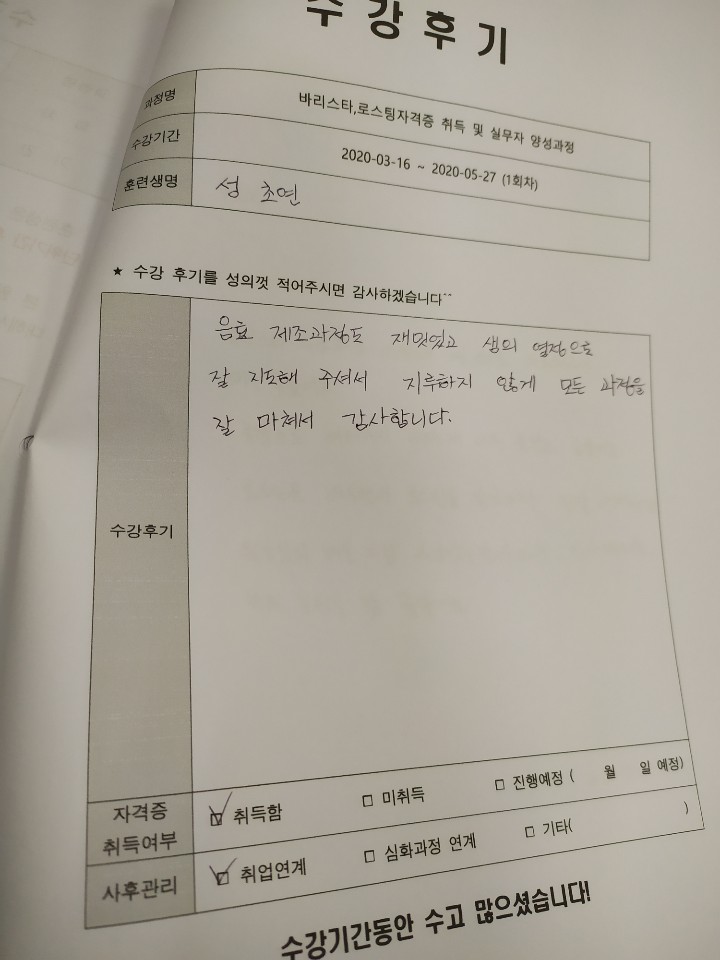 수강후기
과정명 바리스타,로스팅자격증 취득 및 실무자 양성과정
수강기간 2020-03-16 ~ 2020-05-27 (1회차)
훈련생명 성 초연
★ 수강 후기를 성의껏 적어주시면 감사하겠습니다^^
음료 제조과정도 재밌었고 쌤의 열정으로
잘 지도해 주셔서 지루하지 않게 모든 과정을
잘 마쳐서 감사합니다.
수강후기
자격증
취득여부
☑ 취득함 □ 미취득 □ 진행예정 ( 월 일 예정)
사후관리 ☑ 취업연계 □ 심화과정 연계 □ 기타( )
수강기간동안 수고 많으셨습니다!